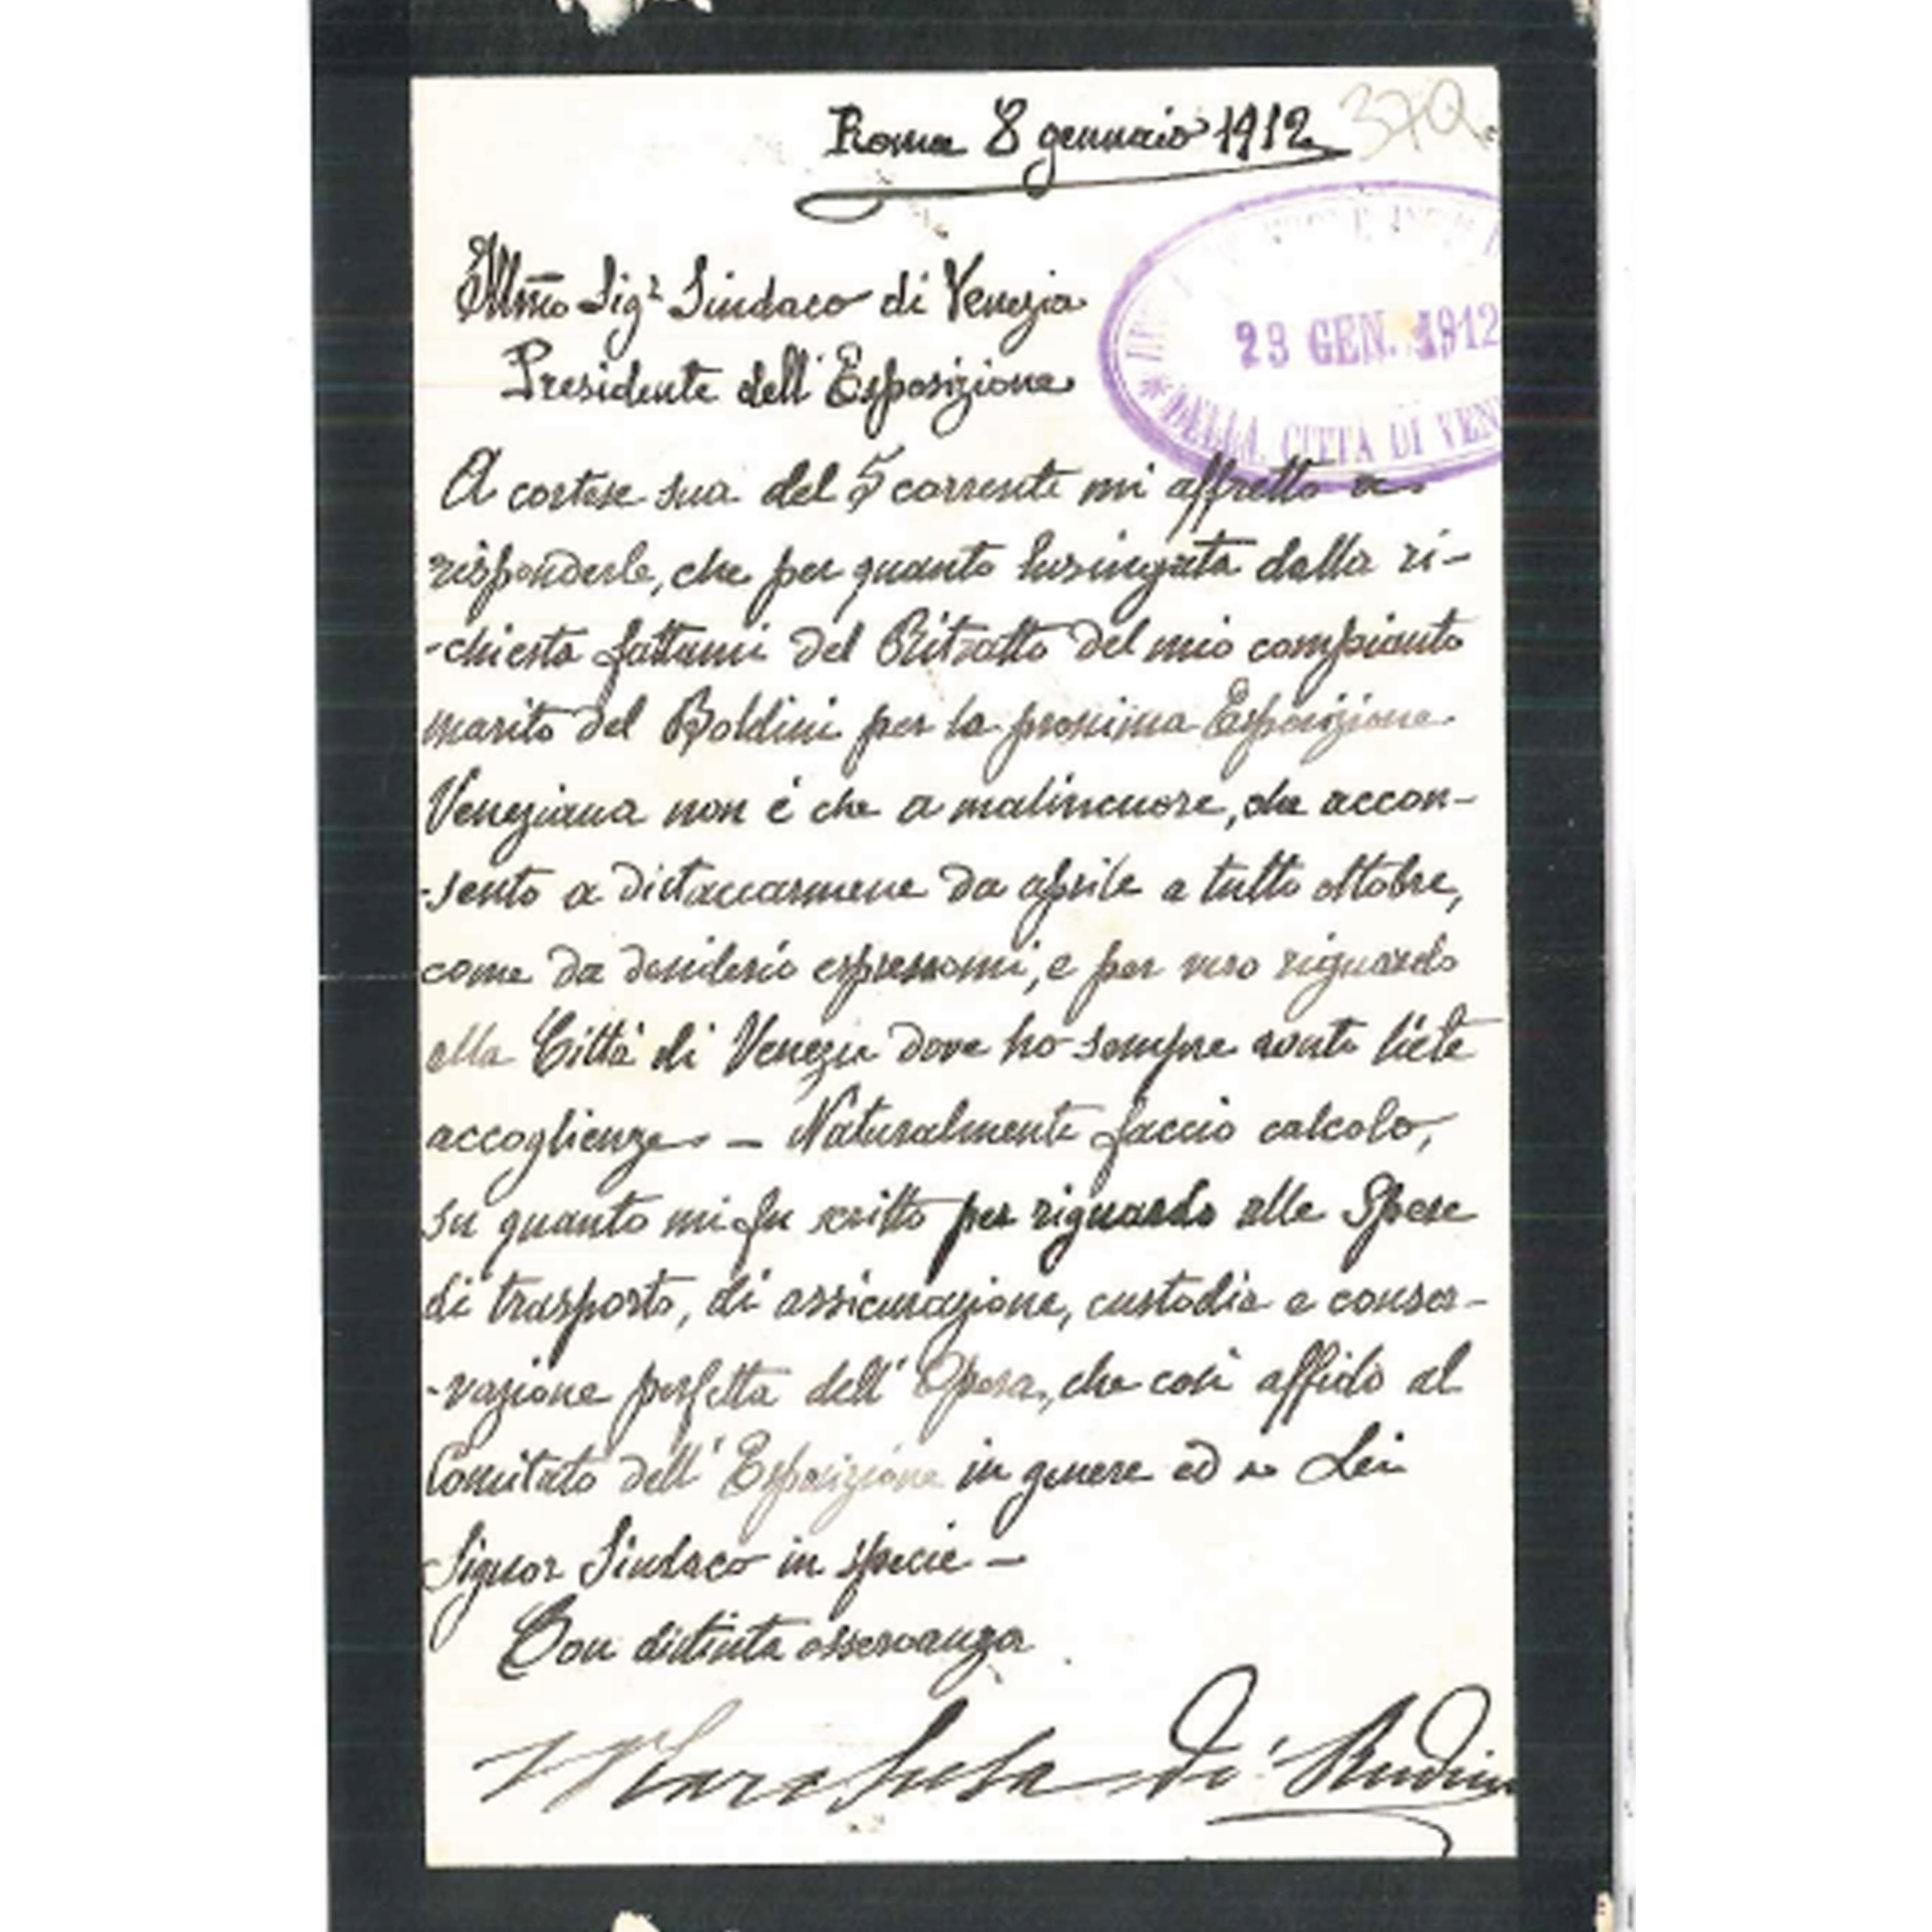 Roma 8 gennaio 1912
370
Illmo Sigr Sindaco di Venezia
23 GEN. 1912
Presidente dell'Esposizione
DELLA CITTÀ DI VEN
A cortese sua del 5 corrente mi affretto a
risponderle, che per quanto lusingata dalla ri-
-chiesta fattami del Ritratto del mio compianto
marito del Boldini per la prossima Esposizione
Veneziana non è che a malincuore, che accon-
-sento a distaccarmene da aprile a tutto ottobre,
come da desiderio espressomi, e per vero riguardo
alla Città di Venezia dove ho sempre avuto liete
accoglienze. — Naturalmente faccio calcolo,
su quanto mi fu scritto per riguardo alle Spese
di trasporto, di assicurazione, custodia e conser-
-vazione perfetta dell'Opera, che così affido al
Comitato dell'Esposizione in genere ed a Lei
Signor Sindaco in specie —
Con distinta osservanza
Marchesa di Rudinì